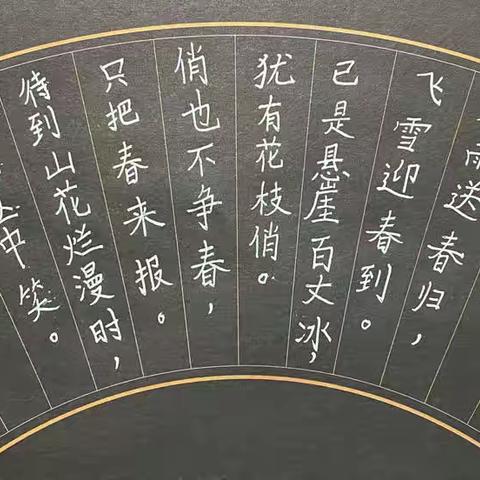 雨送春归，
飞雪迎春到。
已是悬崖百丈冰，
犹有花枝俏。
俏也不争春，
只把春来报。
待到山花烂漫时，
丛中笑。